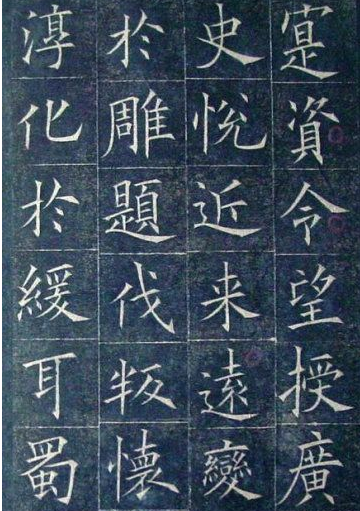 寔資令望授廣
史悅近来遠變
於雕題伐叛懷
淳化於緩耳蜀